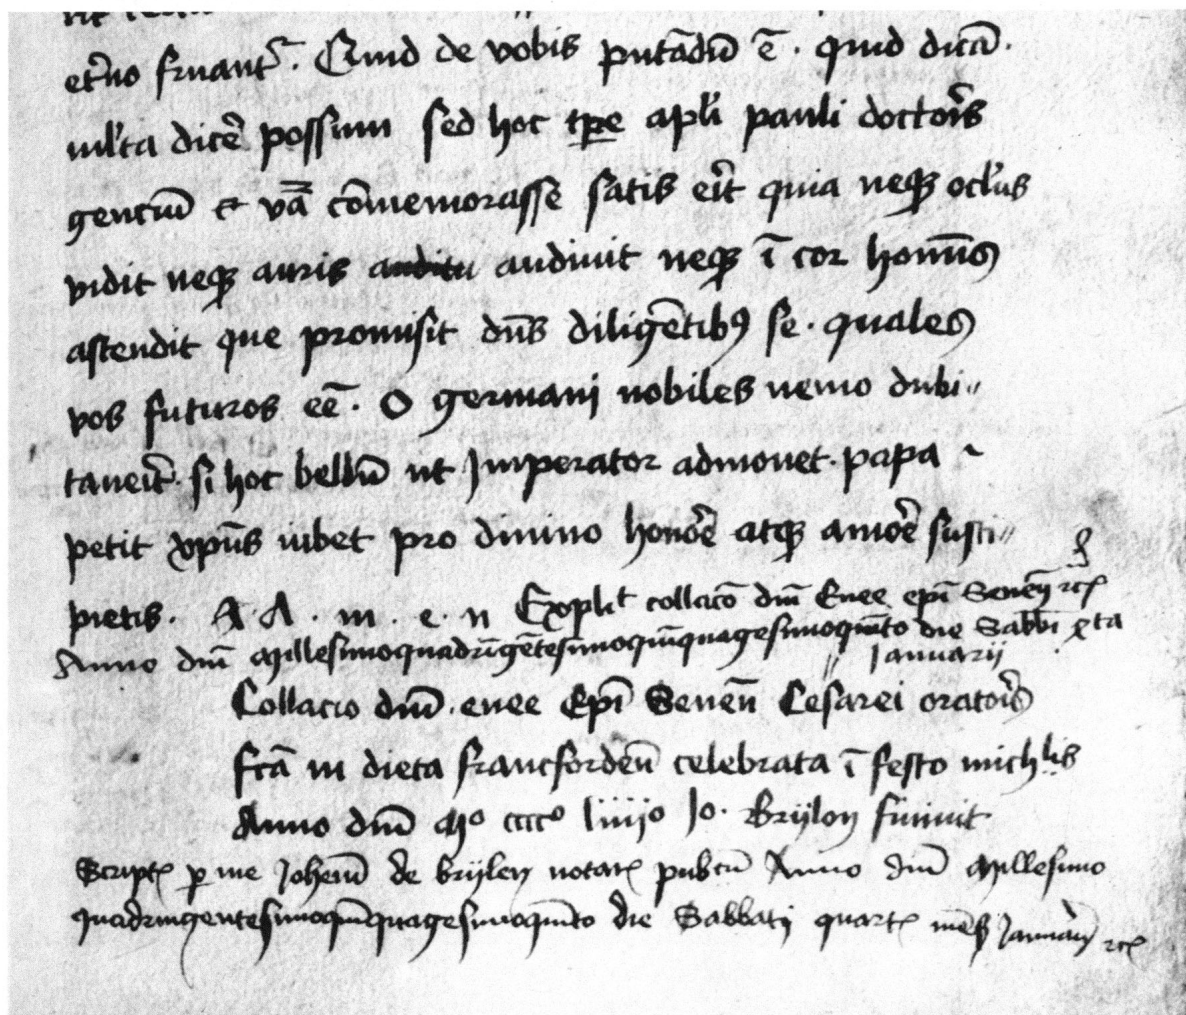 et̄no fruant̄. Quid de vobis putādū ē. quid dicā.
ml̄ta dicē possum sed hoc tp̄e apl̄i pauli doctoris
gentiū et vā cōmemorasse satis erit quia neq₃ oclūs
vidit neq₃ auris auditu audiuit neq₃ ī cor homīs
ascendit que promisit dn̄s diligētib⁹ se. quales
vos futuros eē. O germanj nobiles nemo dubi〃
taveīt. si hoc bellū ut Imperator admonet. papa
petit xp̄us iubet pro diuino honōe atq₃ amōe susci〃
pietis. A A. m. e. n Explit collacō dn̄i Enee epī Senen̄ rc̄
Anno dn̄i Millesimoquadrīgētesimoquīquagesimoquīto die Sabbī
Januarij
Collacio dn̄i. enee Epī Senen̄ Cesarei oratoris
fcā in dieta francforden̄ celebrata ī festo michlis
Anno dn̄i Mº ccccº liiijº Jo. Brijlon finiuit
Script₎ p me Johem̄ de brijlon notar₎ pubcū Anno dn̄i Millesimo
quadringentesimoquīquagesimoquīto die Sabbatj quart₎ mēs Januarij rc̄